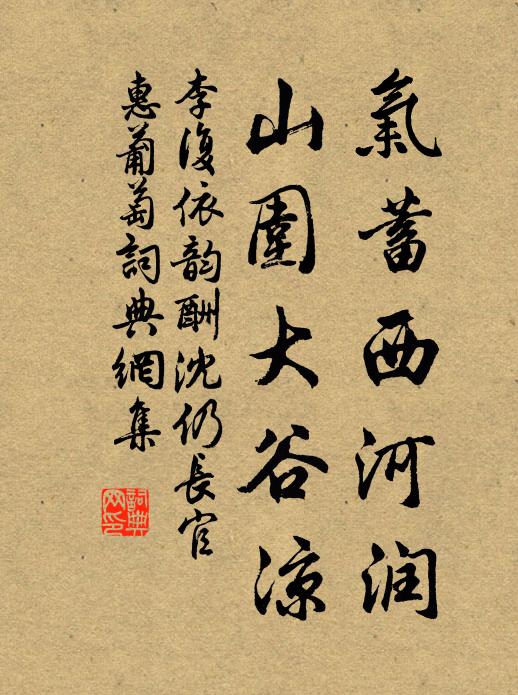 氣蓄西河润
山圍大谷凉
李復依韵酬沈仍長官
惠葡萄詞典網集
詞典
网印